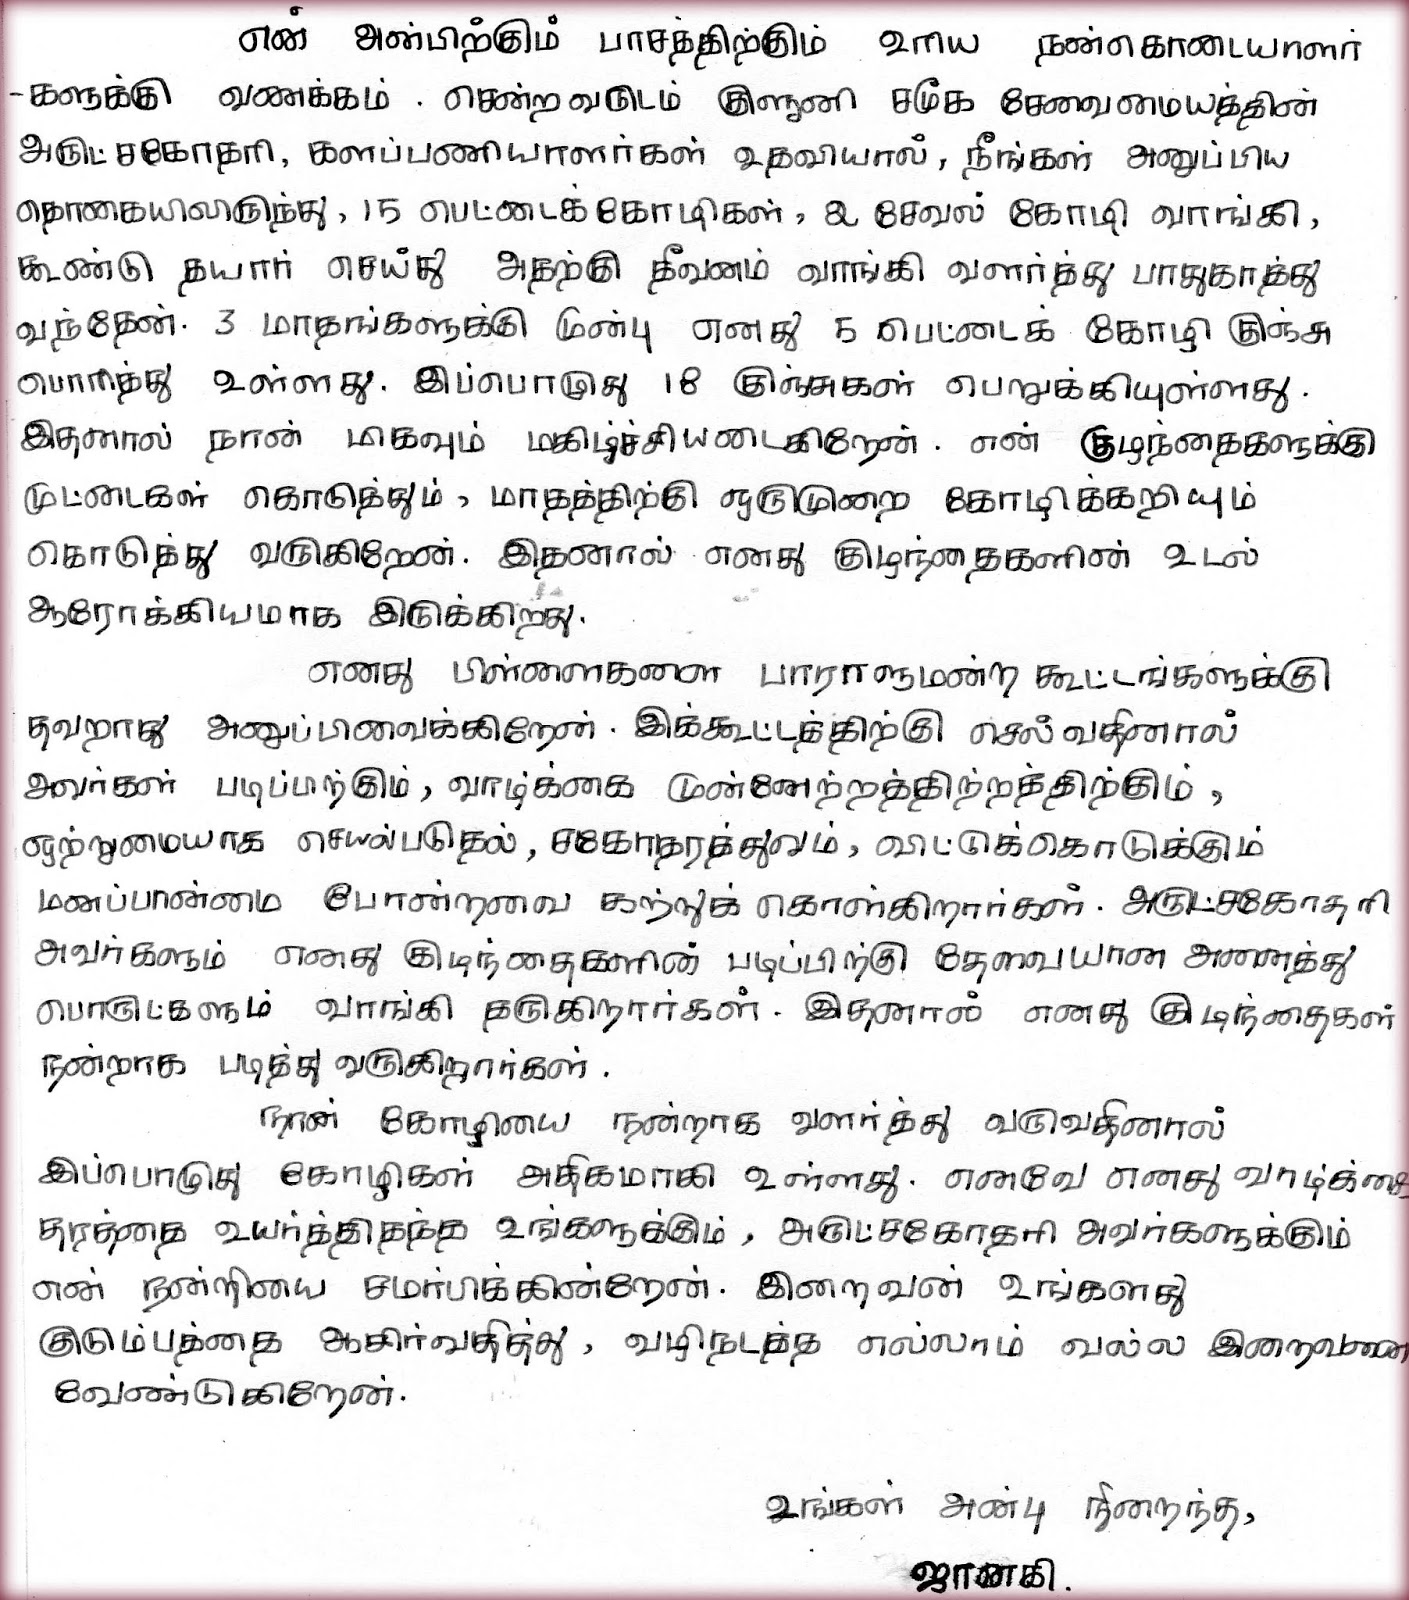 என் அன்பிற்கும் பாசத்திற்கும் உரிய நன்கொடையாளர்
-களுக்கு வணக்கம். சென்றவருடம் குளுனி சமூக சேவைமையத்தின்
அருட்சகோதரி, களப்பணியாளர்கள் உதவியால், நீங்கள் அனுப்பிய
தொகையிலிருந்து, 15 பெட்டைக்கோழிகள், 2 சேவல் கோழி வாங்கி,
கூண்டு தயார் செய்து அதற்கு தீவனம் வாங்கி வளர்த்து பாதுகாத்து
வந்தேன். 3 மாதங்களுக்கு முன்பு எனது 5 பெட்டைக் கோழி குஞ்சு
பொரித்து உள்ளது. இப்பொழுது 18 குஞ்சுகள் பெறுக்கியுள்ளது.
இதனால் நான் மிகவும் மகிழ்ச்சியடைகிறேன். என் குழந்தைகளுக்கு
முட்டைகள் கொடுத்தும், மாதத்திற்கு ஒருமுறை கோழிக்கறியும்
கொடுத்து வருகிறேன். இதனால் எனது குழந்தைகளின் உடல்
ஆரோக்கியமாக இருக்கிறது.
எனது பிள்ளைகளை பாராளுமன்ற கூட்டங்களுக்கு
தவறாது அனுப்பிவைக்கிறேன். இக்கூட்டத்திற்கு செல்வதினால்
அவர்கள் படிப்பிற்கும், வாழ்க்கை முன்னேற்றத்திற்றத்திற்கும்,
ஒற்றுமையாக செயல்படுதல், சகோதரத்துவம், விட்டுக்கொடுக்கும்
மனப்பான்மை போன்றவை கற்றுக் கொள்கிறார்கள். அருட்சகோதரி
அவர்களும் எனது குழந்தைகளின் படிப்பிற்கு தேவையான அனைத்து
பொருட்களும் வாங்கி தருகிறார்கள். இதனால் எனது குழந்தைகள்
நன்றாக படித்து வருகிறார்கள்.
நான் கோழியை நன்றாக வளர்த்து வருவதினால்
இப்பொழுது கோழிகள் அதிகமாகி உள்ளது. எனவே எனது வாழ்க்கை
தரத்தை உயர்த்திதந்த உங்களுக்கும், அருட்சகோதரி அவர்களுக்கும்
என் நன்றியை சமர்பிக்கின்றேன். இறைவன் உங்களது
குடும்பத்தை ஆசிர்வதித்து, வழிநடத்த எல்லாம் வல்ல இறைவனை
வேண்டுகிறேன்.
உங்கள் அன்பு நிறைந்த,
ஜானகி.